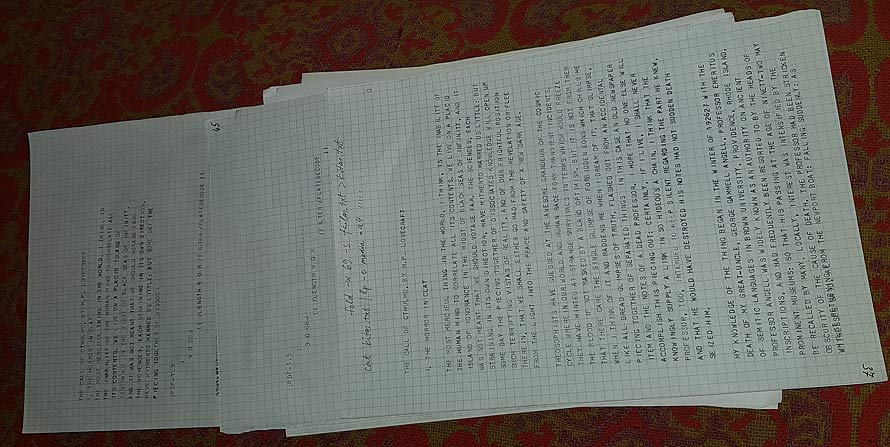 THE CALL OF CTHULHU, BY H.P. LOVECRAFT
1. THE HORROR IN CLAY
THE MOST MERCIFUL THING IN THE WORLD, I THINK, IS
THE INABILITY OF THE HUMAN MIND TO CORRELATE ALL
ITS CONTENTS. WE LIVE ON A PLACID ISLAND OF
IGNORANCE IN THE MIDST OF BLACK SEAS OF INFINITY,
AND IT WAS NOT MEANT THAT WE SHOULD VOYAGE FAR.
THE SCIENCES, EACH STRAINING IN ITS OWN DIRECTION,
HAVE HITHERTO HARMED US LITTLE; BUT SOME DAY THE
PIECING TOGETHER OF
45
THE CALL OF CTHULHU, BY H.P. LOVECRAFT
1. THE HORROR IN CLAY
THE MOST MERCIFUL THING IN THE WORLD, I THINK, IS THE INABILITY OF
THE HUMAN MIND TO CORRELATE ALL ITS CONTENTS. WE LIVE ON A PLACID
ISLAND OF IGNORANCE IN THE MIDST OF BLACK SEAS OF INFINITY, AND IT
WAS NOT MEANT THAT WE SHOULD VOYAGE FAR. THE SCIENCES, EACH
STRAINING IN ITS OWN DIRECTION, HAVE HITHERTO HARMED US LITTLE; BUT
SOME DAY THE PIECING TOGETHER OF DISSOCIATED KNOWLEDGE WILL OPEN UP
SUCH TERRIFYING VISTAS OF REALITY, AND OF OUR FRIGHTFUL POSITION
THEREIN, THAT WE SHALL EITHER GO MAD FROM THE REVELATION OR FLEE
FROM THE LIGHT INTO THE PEACE AND SAFETY OF A NEW DARK AGE.
THEOSOPHISTS HAVE GUESSED AT THE AWESOME GRANDEUR OF THE COSMIC
CYCLE WHEREIN OUR WORLD AND HUMAN RACE FORM TRANSIENT INCIDENTS.
THEY HAVE HINTED AT STRANGE SURVIVALS IN TERMS WHICH WOULD FREEZE
THE BLOOD IF NOT MASKED BY A BLAND OPTIMISM. BUT IT IS NOT FROM THEM
THAT THERE CAME THE SINGLE GLIMPSE OF FORBIDDEN EONS WHICH CHILLS ME
WHEN I THINK OF IT AND MADDENS ME WHEN I DREAM OF IT. THAT GLIMPSE,
LIKE ALL DREAD GLIMPSES OF TRUTH, FLASHED OUT FROM AN ACCIDENTAL
PIECING TOGETHER OF SEPARATED THINGS - IN THIS CASE AN OLD NEWSPAPER
ITEM AND THE NOTES OF A DEAD PROFESSOR. I HOPE THAT NO ONE ELSE WILL
ACCOMPLISH THIS PIECING OUT; CERTAINLY, IF I LIVE, I SHALL NEVER
KNOWINGLY SUPPLY A LINK IN SO HIDEOUS A CHAIN. I THINK THAT THE
PROFESSOR, TOO, INTENDED TO KEEP SILENT REGARDING THE PART HE KNEW,
AND THAT HE WOULD HAVE DESTROYED HIS NOTES HAD NOT SUDDEN DEATH
SEIZED HIM.
MY KNOWLEDGE OF THE THING BEGAN IN THE WINTER OF 192627 WITH THE
DEATH OF MY GREAT-UNCLE, GEORGE GAMMELL ANGELL, PROFESSOR EMERITUS
OF SEMITIC LANGUAGES IN BROWN UNIVERSITY, PROVIDENCE, RHODE ISLAND.
PROFESSOR ANGELL WAS WIDELY KNOWN AS AN AUTHORITY ON ANCIENT
INSCRIPTIONS, AND HAD FREQUENTLY BEEN RESORTED TO BY THE HEADS OF
PROMINENT MUSEUMS; SO THAT HIS PASSING AT THE AGE OF NINETY-TWO MAY
BE RECALLED BY MANY. LOCALLY, INTEREST WAS INTENSIFIED BY THE
OBSCURITY OF THE CAUSE OF DEATH. THE PROFESSOR HAD BEEN STRICKEN
WHILST RETURNING FROM THE NEWPORT BOAT; FALLING SUDDENLY; AS